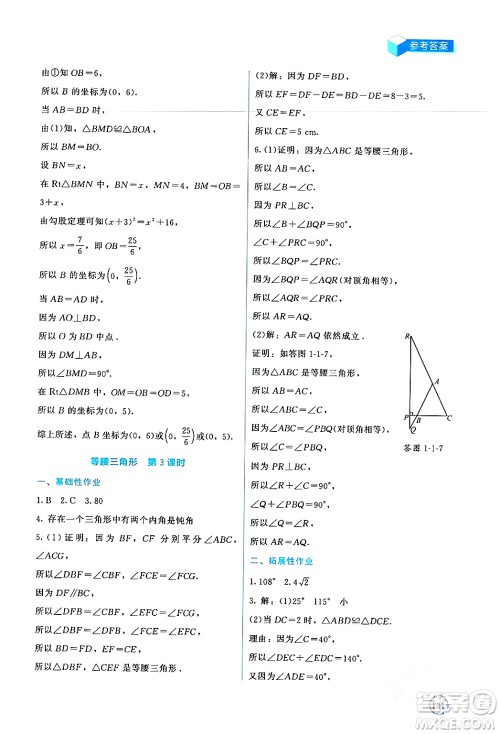 参考答案
由①知 OB=6,
所以 B 的坐标为(0, 6).
当 AB=BD 时,
由(1)知, △BMD≌△BOA,
所以 BM=OB.
设 BN=x,
在 Rt△BMN 中, BM=OB=BD=
3+x,
由勾股定理可知(x+3)²=x²+16,
所以 x=7/6, 即 OB=25/6,
所以 B 的坐标为(0, 25/6).
当 AD=AB 时,
因为 AO⊥BD,
所以 O 为 BD 中点.
因为 DM⊥AB,
所以∠BMD=90°.
在 Rt△DMB 中, OM=OB=OD=
5,
所以 B 的坐标为(0, 5).
综上所述, 点 B(0, 6)或(0, 25/6)或
(0, 5).
等腰三角形 第 3 课时
一、基础性作业
1. B 2. C 3. 80
4. 存在一个三角形中有两个内角是钝角
5. (1)证明: 因为 BF, CF 分别平分∠ABC,
∠ACG,
所以∠DBF=∠CBF, ∠FCE=∠FCG.
因为 DF∥BC,
所以∠DFB=∠CBF, ∠CFE=∠FCG.
所以∠DBF=∠DFB, ∠FCE=∠CFE.
所以△DBF, △CEF 是等腰三角形.
(2)因为 DF=BD, CE=EF,
所以 BD-CE=FD-EF=DE=8-3=5.
又 CE=EF,
所以 CE=5 cm.
6. (1)证明: 因为△ABC 是等腰三角形,
所以∠B=∠C.
因为 PR⊥BC,
所以∠B+∠BQP=90°,
∠C+∠PRC=90°.
所以∠BQP=∠PRC.
因为∠BQP=∠AQR(对顶角相等)
所以∠AQR=∠PRC.
所以 AR=AQ.
(2)解: AR=AQ 依然成立.
证明: 如答图 1-1-7,
因为△ABC 是等腰三角形,
所以∠ABC=∠C.
因为∠ABC=∠PBQ(对顶角相等),
所以∠C=∠PBQ.
因为 PR⊥BC,
所以∠R+∠C=90°,
∠Q+∠PBQ=90°.
所以∠Q=∠R.
所以 AR=AQ.
R
A
P
B
C
Q
答图 1-1-7
二、拓展性作业
1. 108° 2. 4√2
3. 解: (1)25° 115° 小
(2)当 DC=2 时, △ABD≌△DCE.
理由: 因为∠C=40°,
所以∠DEC+∠EDC=140°.
又因为∠ADE=40°,
答案圈
MXQE.COM